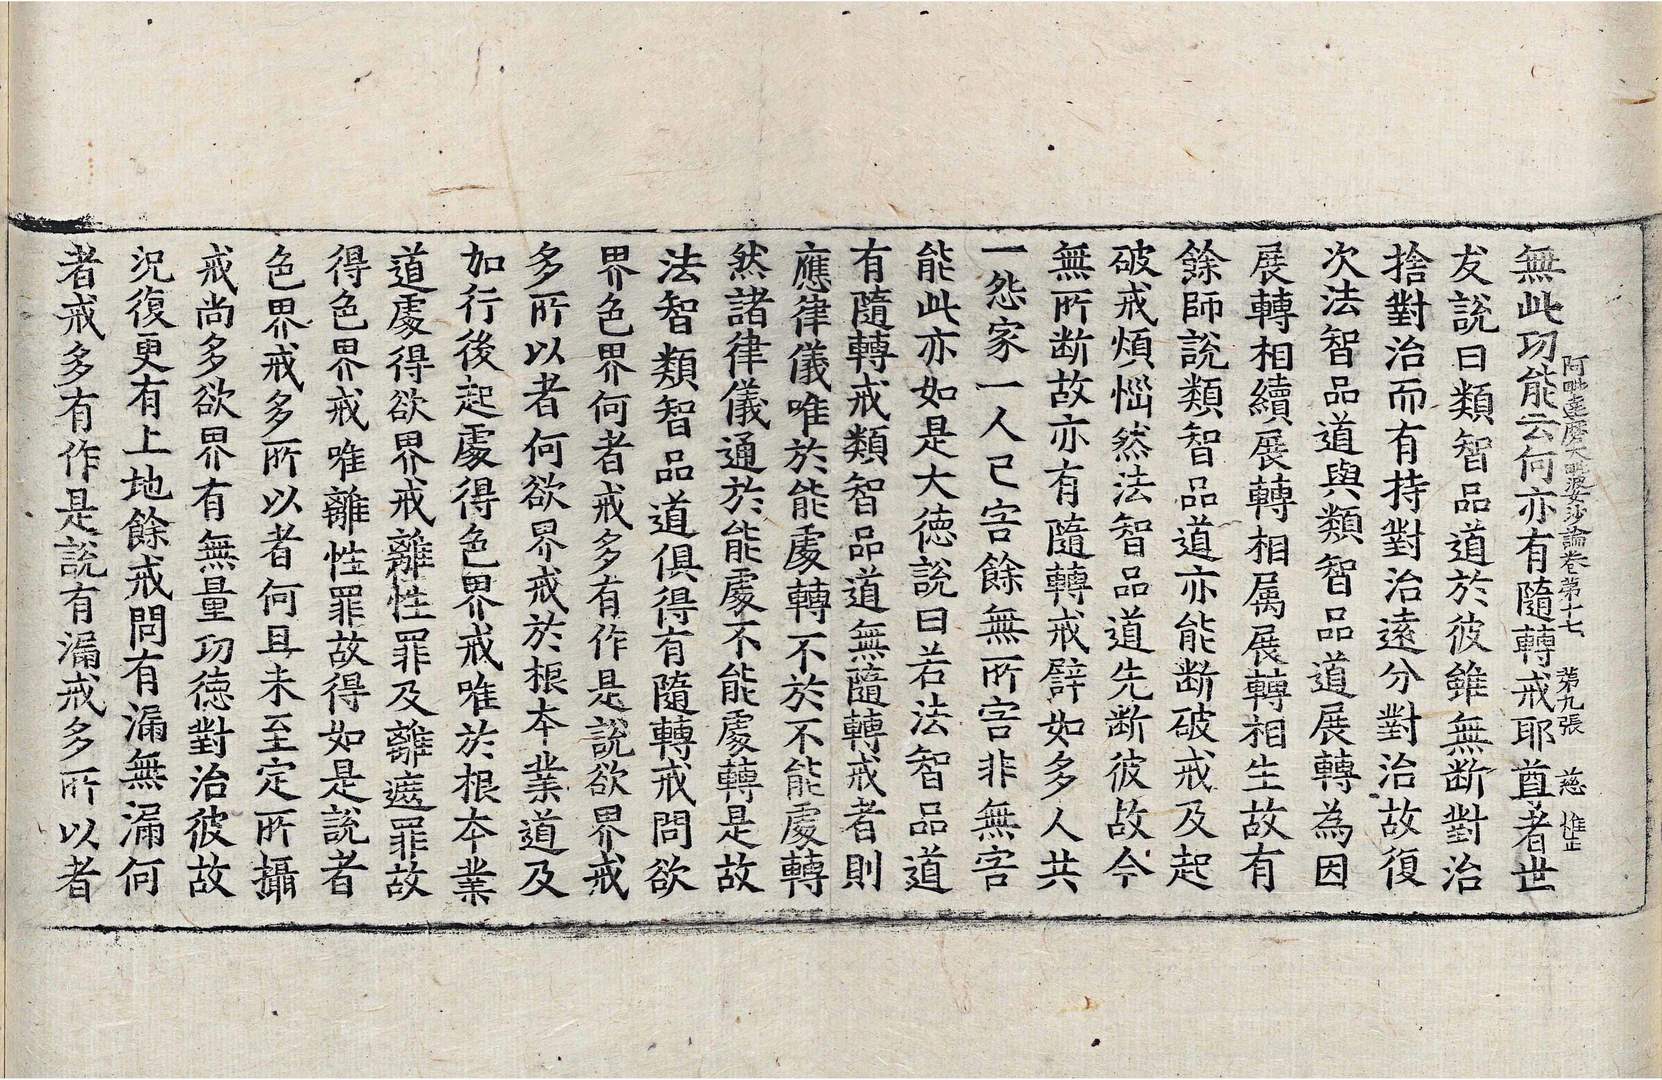 阿毗達磨大毗婆沙論卷第十七 第九張 慈 惟正
無此功能云何亦有隨轉戒耶尊者世
友說曰類智品道於彼雖無断對治
捨對治而有持對治遠分對治故復
次法智品道與類智品道展轉為因
展轉相續展轉相属展轉相生故有
餘師說類智品道亦能断破戒及起
破戒煩惱然法智品道先断彼故今
無所断故亦有隨轉戒譬如多人共
一怨家一人已害餘無所害非無害
能此亦如是大德說曰若法智品道
有隨轉戒類智品道無隨轉戒者則
應律儀唯於能處轉不於不能處轉
然諸律儀通於能處不能處轉是故
法智類智品道俱得有隨轉戒問欲
界色界何者戒多有作是說欲界戒
多所以者何欲界戒於根本業道及
加行後起處得色界戒唯於根本業
道處得欲界戒離性罪及離遮罪故
得色界戒唯離性罪故得如是說者
色界戒多所以者何且未至定所攝
戒尚多欲界有無量功德對治彼故
況復更有上地餘戒問有漏無漏何
者戒多有作是說有漏戒多所以者